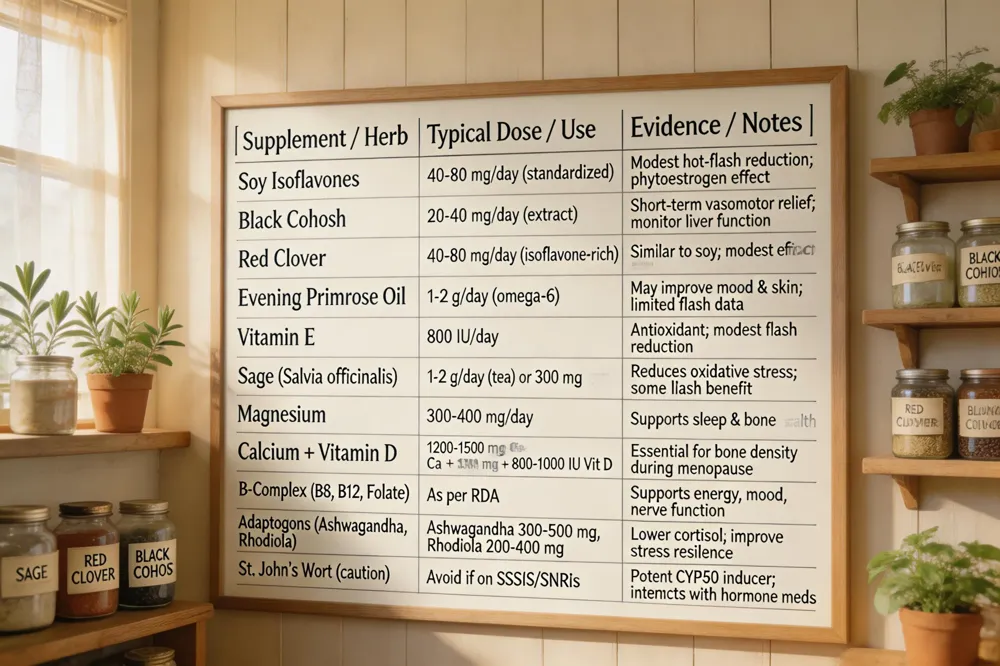 Supplement / Herb | Typical Dose / Use | Evidence / Notes
Soy Isoflavones
40-80 mg/day (standardized)
Modest hot-flash reduction;
phytoestrogen effect
Black Cohosh
20-40 mg/day (extract)
Short-term vasomotor relief;
monitor liver function
Red Clover
40-80 mg/day (isoflavone-rich)
Similar to soy; modest
Evening Primrose Oil
1-2 g/day (omega-6)
May improve mood & skin;
limited flash data
Vitamin E
800 IU/day
Antioxidant; modest flash
reduction
Sage (Salvia officinalis)
1-2 g/day (tea) or 300 mg
Reduces oxidative stress;
some llash benefit
Magnesium
300-400 mg/day
Supports sleep & bone
Calcium + Vitamin D
1200-1500 mg
Ca + mg + 800-1000 IU Vit D
Essential for bone density
during menopause
B-Complex (B8, B12, Folate)
As per RDA
Supports energy, mood,
nerve function
Adaptogons (Ashwagandha,
Rhodiola)
Ashwagandha 300-500 mg,
Rhodiola 200-400 mg
Lower cortisol; improve
stress resilence
St. John's Wort (caution)
Avoid if on SSSIS/SNRis
Potent CYP50 inducer;
intemcts with hormone meds
SAGE
RED
CLOVER
BLACK
COHOS
BLACK
COHIOS
RED